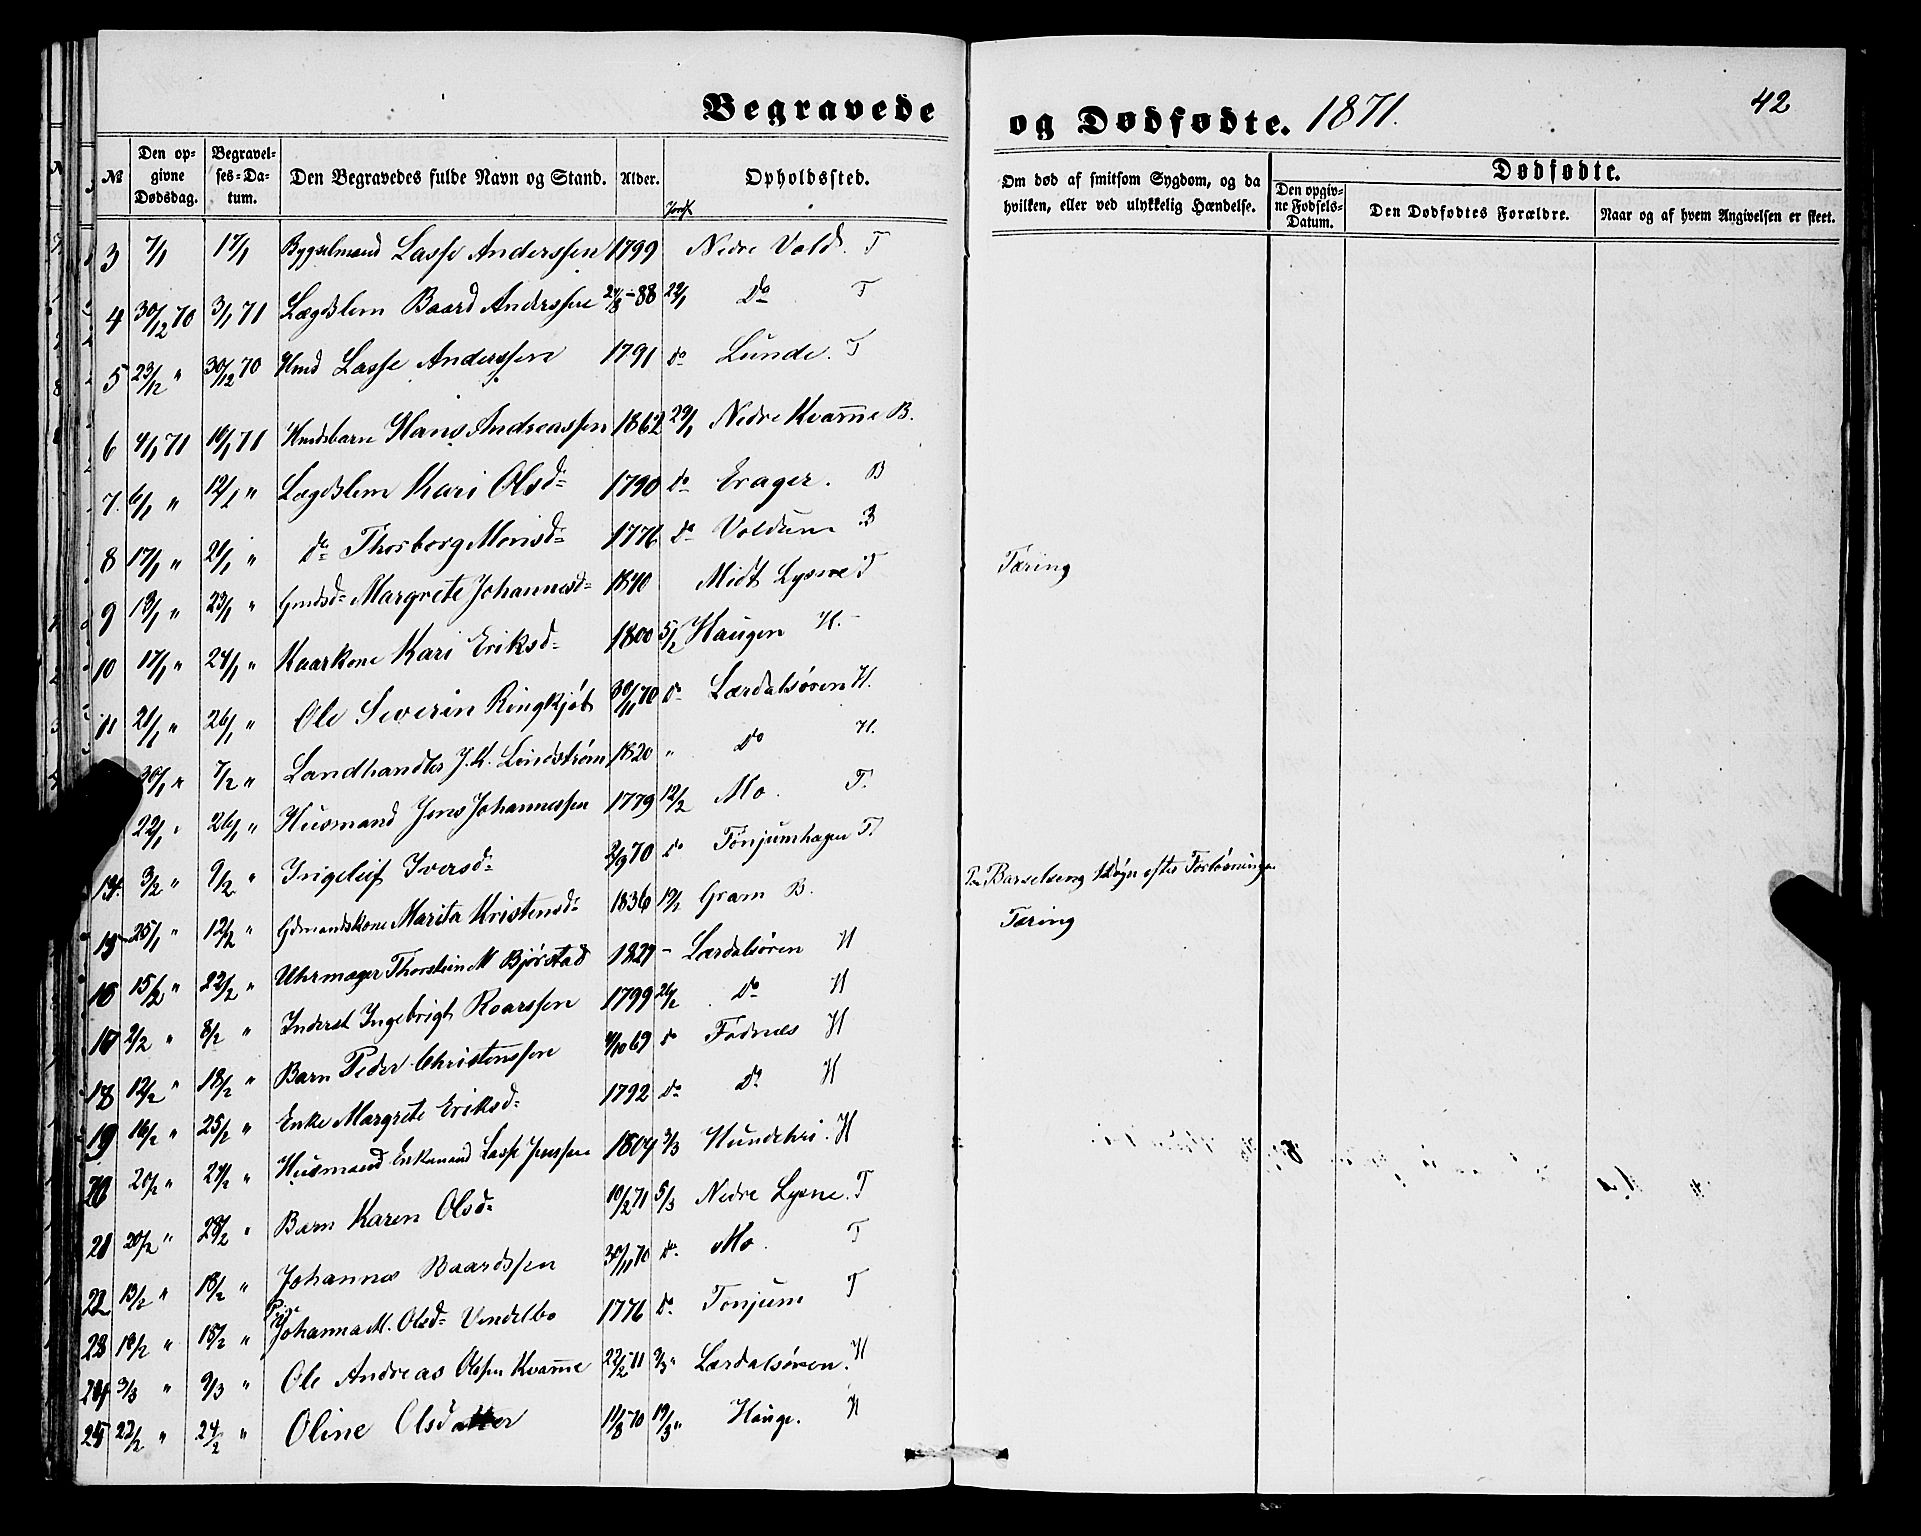 Begravede og Dødfødte. 1871. 42
№ Den opgivne Dødsdag. Begravelses-Datum. Den Begravedes fulde Navn og Stand. Alder. Opholdssted. Om død af smitsom Sygdom, og da hvilken, eller ved ulykkelig Hændelse. Dødfødte.
Den opgivne Fødsels-Datum. Den Dødfødtes Forældre. Naar og af hvem Angivelsen er skeet.
Jordf.
3 7/1 17/1 Bygselmand Lasse Anderssen 1799 Nedre Vold. T
4 30/12 70 3/1 71 Lægdslem Baard Anderssen 24/8 - 88 29/1 Do T
5 23/12 " 30/12 70 Hmd Lasse Anderssen 1791 do Lunde. T
6 4/1 71 10/1 71 Hmdsbarn Hans Andreassen 1862 29/1 Nedre Kvam̅e B.
7. 6/1 " 12/1 " Lægdslem Kari Olsd: 1790 do Erager. B
8 17/1 " 21/1 " do Thorborg Monsd: 1776 do Voldum B
9 13/1 " 23/1 " Gmdsd: Margrete Johannesd: 1840 Midt Lysne T Tæring
10 17/1 " 24/1 " Kaarkone Kari Eriksd: 1800 5/2 Haugen H.
11 21/1 " 26/1 " Ole Severin Ringkjøb 30/11 70 do Lærdalsøren H.
30/1 " 7/2 " Landhandler J. K. Lindstrøm 1820 " do H.
22/1 " 26/1 " Husmand Jens Johannessen 1779 12/2 Mo. T.
14. 3/2 " 9/2 " Ingeleif Iversd: 2/9 70 do Tønjumhagen T.
15 25/1 " 12/2 " Gdmandskone Marita Kristensd: 1836 19/2 Gram B. Paa Barselseng døgn efter Forløsningen
16 15/2 " 22/2 " Uhrmager Thorstein M Bjørstad 1829 - Lærdalsøren H Tæring
17 2/2 " 8/2 " Inderst Ingebrigt Roarssen 1799 26/2 do H
18 12/2 " 18/2 " Barn Peder Christenssen 4/10 69 do Fodnæs H
19 16/2 " 25/2 " Enke Margrete Eriksd: 1792 do do H
20 20/2 " 27/2 " Husmand Enkemand Lasse Jenssen 1804 3/3 Hundehri. H
21 20/2 " 28/2 " Barn Karen Olsd: 10/2 71 5/3 Nedre Lysne. T
22 13/2 " 18/2 " Johannes Baardssen 30/11 70 do Mo. T
23 10/2 " 15/2 " Pige Johanna M. Olsd: Vendelbo 1776 do Tonjum T
24 3/3 " 9/3 " Ole Andreas Olsen Kvam̅e 22/2 71 9/3 " Lærdalsøren. H
25 22/2 " 24/2 " Oline Olsdatter 11/8 70 19/3 " Hauge. H